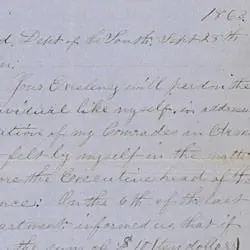 1863
d, Dept of the South. Sept 28th
Your Excelency will pardon the
vidical like myself, in address
ation of my Comrades in Arms
felt by myself in the matt
ore the Executive head of the
nce: On the 6th of the last
artment informed us, that if
the sum of $10 per dollars